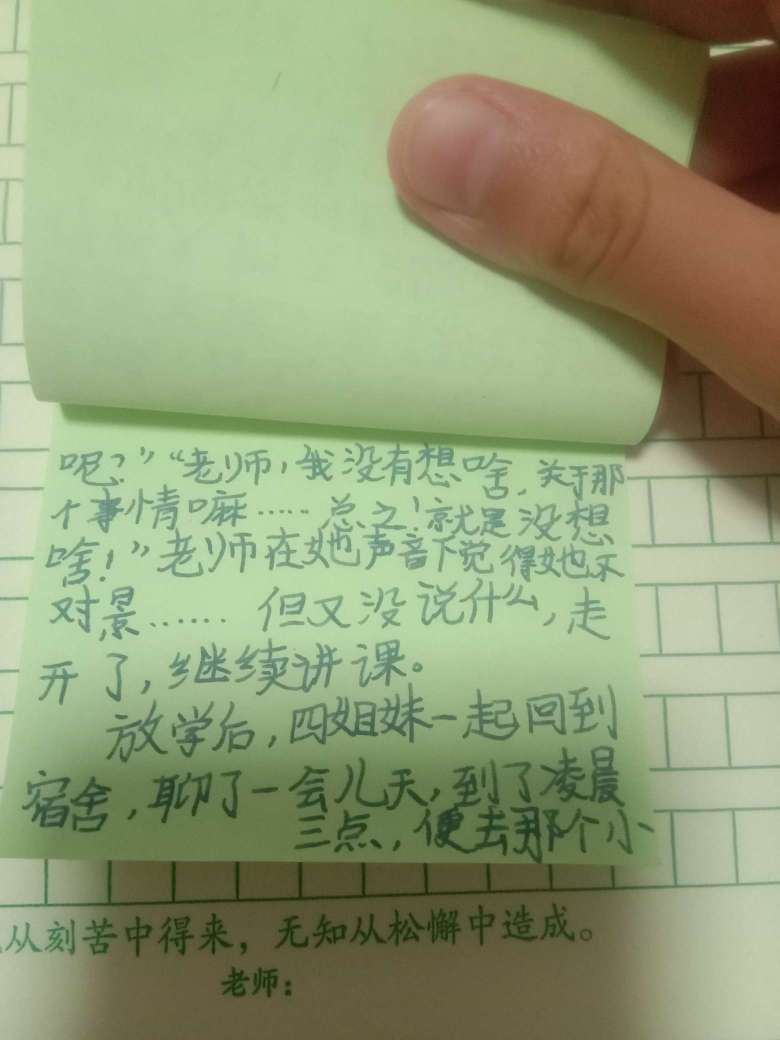 呢？”“老师，我没有想啥，关于那
个事情嘛……总之！就是没想
啥！”老师在她声音下觉得她不
对景……但又没说什么，走
开了，继续讲课。
放学后，四姐妹一起回到
宿舍，聊了一会儿天，到了凌晨
三点，便去那个小
从刻苦中得来，无知从松懈中造成。
老师：